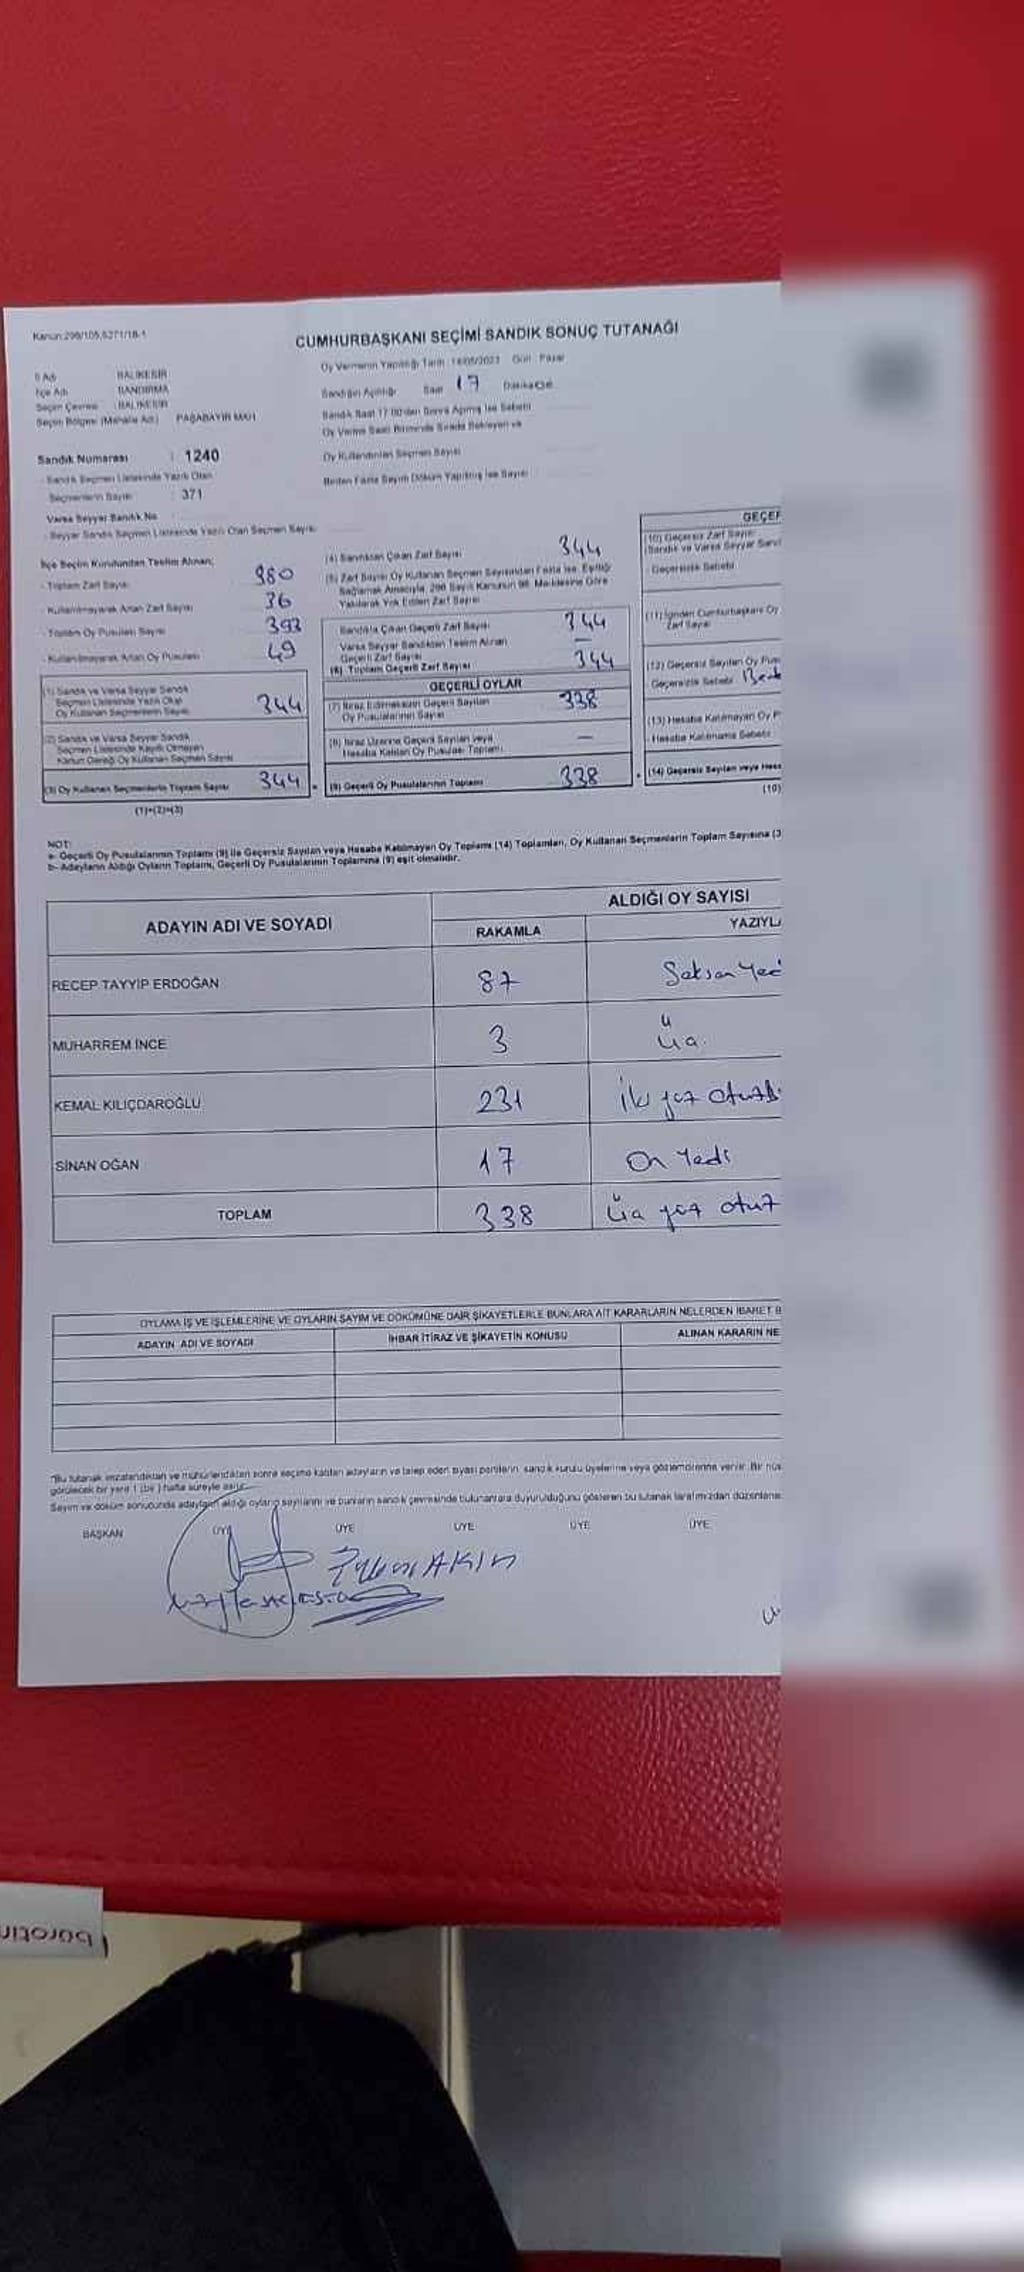 Kanun:298/105,6271/18-1
CUMHURBAŞKANI SEÇİMİ SANDIK SONUÇ TUTANAĞI
İl Adı BALIKESİR
İlçe Adı BANDIRMA
Seçim Çevresi BALIKESİR
Seçim Bölgesi (Mahalle Adı) PAŞABAYIR MAH
Oy Vermenin Yapıldığı Tarih 14/05/2023 Gün Pazar
Sandığın Açıldığı Saat 17 Dakika
Sandık Saat 17.00'den Sonra Açılmış İse Sebebi
Oy Verme Saati Bitiminde Sırada Bekleyen ve
Oy Kullandırılan Seçmen Sayısı
Birden Fazla Sayım Döküm Yapılmış İse Sayısı
Sandık Numarası : 1240
- Sandık Seçmen Listesinde Yazılı Olan
Seçmenlerin Sayısı : 371
Varsa Seyyar Sandık No
- Seyyar Sandık Seçmen Listesinde Yazılı Olan Seçmen Sayısı
İlçe Seçim Kurulundan Teslim Alınan;
- Toplam Zarf Sayısı 380
- Kullanılmayarak Artan Zarf Sayısı 36
- Toplam Oy Pusulası Sayısı 393
- Kullanılmayarak Artan Oy Pusulası 49
(1) Sandık ve Varsa Seyyar Sandık
Seçmen Listesinde Yazılı Olup
Oy Kullanan Seçmenlerin Sayısı 344
(2) Sandık ve Varsa Seyyar Sandık
Seçmen Listesinde Kayıtlı Olmayan
Kanun Gereği Oy Kullanan Seçmen Sayısı
(3) Oy Kullanan Seçmenlerin Toplam Sayısı 344
(1)+(2)=(3)
(4) Sandıktan Çıkan Zarf Sayısı 344
(5) Zarf Sayısı Oy Kullanan Seçmen Sayısından Fazla İse, Eşitliği
Sağlamak Amacıyla, 298 Sayılı Kanunun 98. Maddesine Göre
Yakılarak Yok Edilen Zarf Sayısı
Sandıkta Çıkan Geçerli Zarf Sayısı 344
Varsa Seyyar Sandıktan Teslim Alınan
Geçerli Zarf Sayısı —
(6) Toplam Geçerli Zarf Sayısı 344
GEÇERLİ OYLAR
(7) İtiraz Edilmeksizin Geçerli Sayılan
Oy Pusulalarının Sayısı 338
(8) İtiraz Üzerine Geçerli Sayılan veya
Hesaba Katılan Oy Pusulası Toplamı —
(9) Geçerli Oy Pusulalarının Toplamı 338
GEÇER
(10) Geçersiz Zarf Sayısı
(Sandık ve Varsa Seyyar Sand
Geçersizlik Sebebi
(11) İçinden Cumhurbaşkanı Oy
Zarf Sayısı
(12) Geçersiz Sayılan Oy Pus
Geçersizlik Sebebi
(13) Hesaba Katılmayan Oy P
- Hesaba Katılmama Sebebi
(14) Geçersiz Sayılan veya Hesa
(10)
NOT:
a- Geçerli Oy Pusulalarının Toplamı (9) ile Geçersiz Sayılan veya Hesaba Katılmayan Oy Toplamı (14) Toplamları, Oy Kullanan Seçmenlerin Toplam Sayısına (3
b- Adayların Aldığı Oyların Toplamı, Geçerli Oy Pusulalarının Toplamına (9) eşit olmalıdır.
ADAYIN ADI VE SOYADI
ALDIĞI OY SAYISI
RAKAMLA YAZIYLA
RECEP TAYYİP ERDOĞAN 87 Seksen Yed
MUHARREM İNCE 3 Üç
KEMAL KILIÇDAROĞLU 231 İki yüz otuzb
SİNAN OĞAN 17 On Yedi
TOPLAM 338 Üç yüz otuz
OYLAMA İŞ VE İŞLEMLERİNE VE OYLARIN SAYIM VE DÖKÜMÜNE DAİR ŞİKAYETLERLE BUNLARA AİT KARARLARIN NELERDEN İBARET
ADAYIN ADI VE SOYADI İHBAR İTİRAZ VE ŞİKAYETİN KONUSU ALINAN KARARIN NE
"Bu tutanak imzalandıktan ve mühürlendikten sonra seçime katılan adayların ve talep eden siyasi partilerin sandık kurulu üyelerine veya gözlemcilerine verilir. Bir nüs
görülecek bir yere 1 (bir) hafta süreyle asılır.
Sayım ve döküm sonucunda adayların aldığı oyların sayılarını ve bunların sandık çevresinde bulunanlara duyurulduğunu gösteren bu tutanak tarafımızdan düzenlene
BAŞKAN ÜYE ÜYE ÜYE ÜYE ÜYE
AKIN